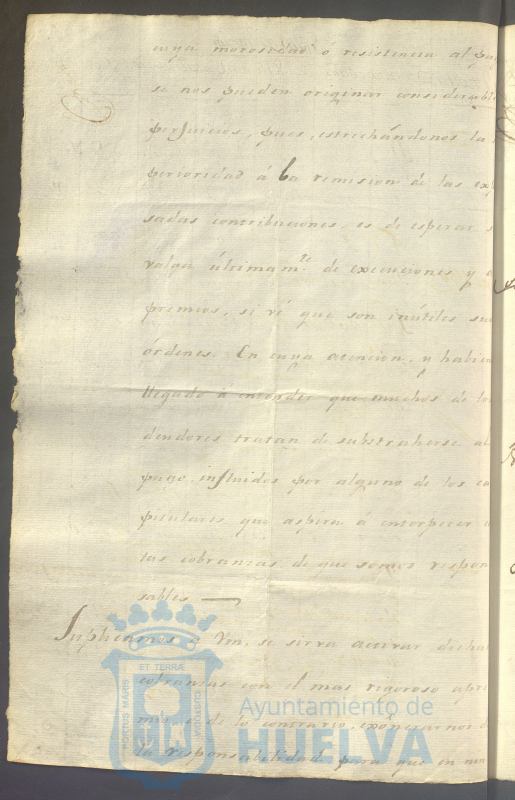 cuya morosidad ó resistencia al pa
se nos pueden originar considerable
perjuicios, pues, estrechándonos la
perioridad á la remision de las ex
sadas contribuciones, es de esperar s
valga últimam.te de execuciones y a
premios, si vé que son inútiles su
órdenes. En cuya atencion, y habien
llegado á entender que muchos de los
deudores tratan de substraherse al
pago, influidos por alguno de los ca
pitulares que aspira á entorpecer
las cobranzas de que somos respon
sables —
Suplicamos a Vm. se sirva activar dichas
cobranzas con el mas rigoroso apre
mio, ó de lo contrario, exônerarnos d
la responsabilidad para que en nin
PORTUS MARIS
ET TERRÆ
CUSTODIA
Ayuntamiento de
HUELVA